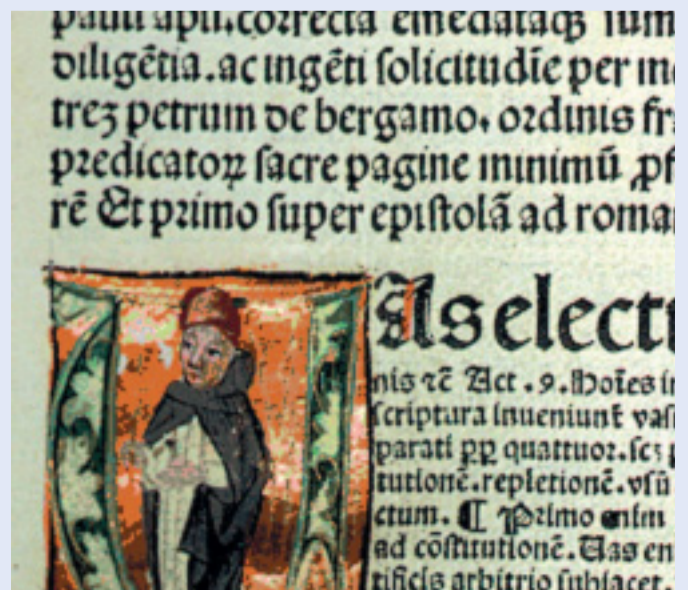 pauli apli.correcta emēdataqꝫ sum
diligētia.ac ingēti solicitudīe per
treꝫ petrum de bergamo. ordinis fr
predicatoꝝ sacre pagine minimū ꝓf
rē Et primo super epistolā ad roma
As electi
nis ⁊c̄ Act .9. Hoīes in
scriptura inueniunt̄ vas
parati pp̱ quattuor.scꝫ
tutionē.repletionē.vsū
ctum. ¶ Primo enim
ad cōstitutionē.Uas en
tificis arbitrio subiacet.